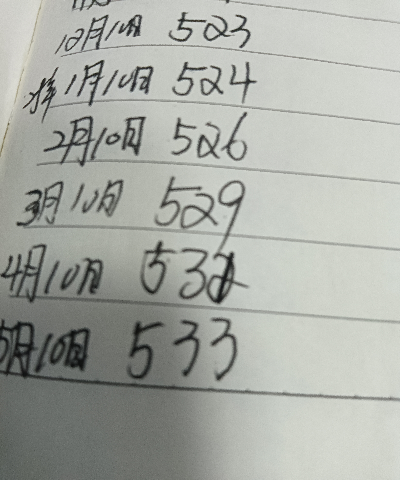 12月10日 523
1月10日 524
2月10日 526
3月10日 529
4月10日 532
5月10日 533